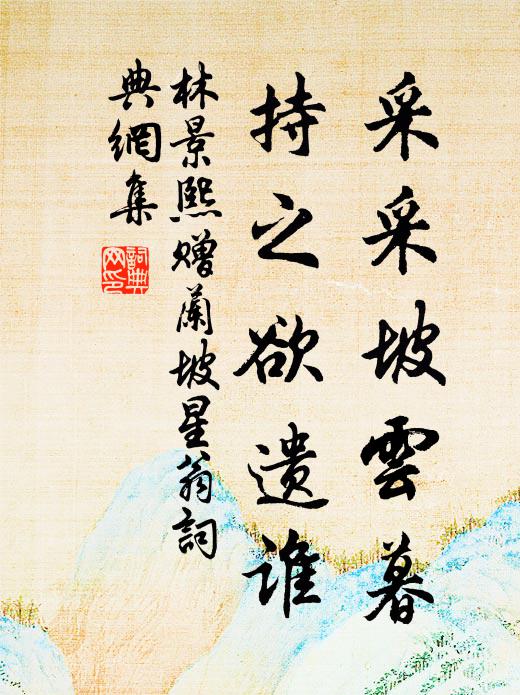 采采坡雲暮
持之欲遺誰
林景熙贈蘭坡星翁詞
典網集
詞典
网印